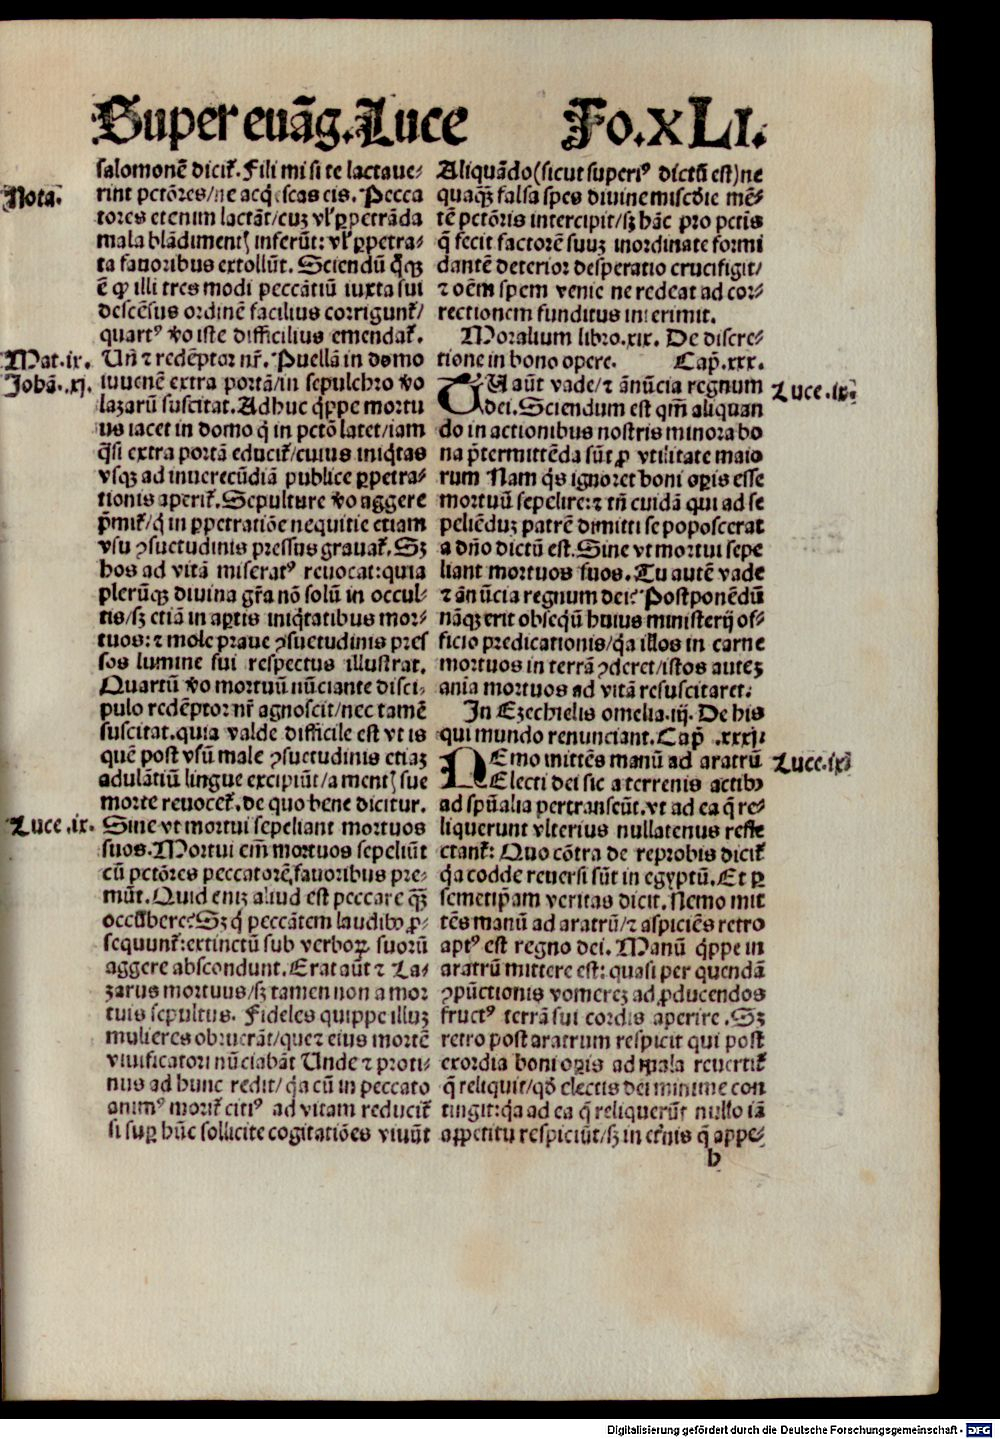 Super euāg. Luce Fo. XLI.
salomonē dicit᷑. Fili mi si te lactaue⸗
Nota.
rint pctōres/ne acq̇escas eis. Pecca
tores etenim lactāt/cuꝫ vl' ꝑpetrāda
mala blādimentꝭ inferūt: vl' ꝑpetra⸗
ta fauoribus extollūt. Sciendū q̄ꝗꝫ
ē ꝙ illi tres modi peccātiū iuxta sui
descēsus ordinē facilius corrigunt᷑/
quartꝰ ꝟo iste difficilius emendat᷑.
Mat.ix.
Uñ ⁊ redēptor nr̄. Puellā in domo
Johā.xj.
iuuenē extra portā/in sepulchro ꝟo
lazarū suscitat. Adhuc q̇ppe mortu
us iacet in domo q̇ in pctō latet/iam
q̄si extra portā educit᷑/cuius iniq̇tas
vsqꝫ ad inuerecūdiā publice ꝑpetra⸗
tionis aperit᷑. Sepulture ꝟo aggere
p̄mit᷑/q̇ in ꝑpetratiōe nequitie etiam
vsu ꝯsuetudinis pressus grauat᷑. Sꝫ
hos ad vitā miseratꝰ reuocat: quia
plerūqꝫ diuina gr̄a nō solū in occul⸗
tis/sꝫ etiā in aꝑtis iniq̇tatibus mor⸗
tuos: ⁊ mole praue ꝯsuetudinis pres
sos lumine sui respectus illustrat.
Quartū ꝟo mortuū nūciante disci⸗
pulo redēptor nr̄ agnoscit/nec tamē
suscitat. quia valde difficile est vt is
quē post vsū male ꝯsuetudinis etiaꝫ
adulātiū lingue excipiūt/a mentꝭ sue
morte reuocet᷑. de quo bene dicitur.
Luce.ix.
Sine vt mortui sepeliant mortuos
suos. Mortui em̄ mortuos sepeliūt
cū pctōres peccatorē fauoribus pre⸗
mūt. Quid eniꝫ aliud est peccare qꝫ̄
occūbere? Sꝫ q̇ peccātem laudibꝰ ꝓ⸗
sequunt᷑: extinctū sub verboꝝ suorū
aggere abscondunt. Erat aūt ⁊ La⸗
zarus mortuus/sꝫ tamen non a mor
tuis sepultus. Fideles quippe illuꝫ
mulieres obruerāt/que ⁊ eius mortē
viuificatori nūciabāt Unde ⁊ proti⸗
nus ad hunc redit/q̇a cū in peccato
animꝰ morit᷑ citiꝰ ad vitam reducit᷑
si suꝑ hūc sollicite cogitatiōes viuūt
Aliquādo(sicut superiꝰ dictū est)ne
quaqꝫ̄ falsa spes diuine misc̄die mē⸗
tē pctōris intercipit/sꝫ hāc pro pctīs
q̄ fecit factorē suuꝫ inordinate formi
dantē deterior desperatio crucifigit/
⁊ oēm spem venie ne redeat ad cor⸗
rectionem funditus interimit.
Moralium libro.xix. De discre⸗
tione in bono opere. Cap̄.xxx.
TU aūt vade/⁊ ānūcia regnum
Luce.ix.
dei. Sciendum est qm̄ aliquan
do in actionibus nostris minora bo
na p̄termittēda sūt ꝓ vtilitate maio
rum Nam q̇s ignoret boni oꝑis esse
mortuū sepelire: ⁊ tn̄ cuidā qui ad se
peliēduꝫ patrē dimitti se poposcerat
a dn̄o dictū est. Sine vt mortui sepe
liant mortuos suos. Tu autē vade
⁊ ānūcia regnum dei? Postponēdū
nāqꝫ erit obseq̇ū huius ministerij of⸗
ficio predicationis/q̇a illos in carne
mortuos in terrā ꝯderet/istos auteꝫ
aīa mortuos ad vitā resuscitaret.
In Ezechielis omelia.iij. De his
qui mundo renunciant. Cap̄.xxxj.
NEmo mittēs manū ad aratrū
Luce.ix.
Electi dei sic a terrenis actibꝰ
ad spūalia pertranseūt. vt ad ea q̄ re⸗
liquerunt vlterius nullatenus refle
ctant᷑: Quo cōtra de reprobis dicit᷑
q̇a corde reuersi sūt in egyptū. Et ꝑ
semetip̄am veritas dicit. Nemo mit
tēs manū ad aratrū/⁊ aspiciēs retro
aptꝰ est regno dei. Manū q̇ppe in
aratrū mittere est: quasi per quendā
ꝯpūctionis vomereꝫ ad ꝓducendos
fructꝰ terrā sui cordis aperire. Sꝫ
retro post aratrum respicit qui post
exordia boni oꝑis ad mala reuertit᷑
q̄ reliquit/qđ electis dei minime con
tingit: q̇a ad ea q̄ reliquerūt nullo iā
appetitu respiciūt/sꝫ in et̄nis q̄ appe⸗
b
Digitalisierung gefördert durch die Deutsche Forschungsgemeinschaft - DFG